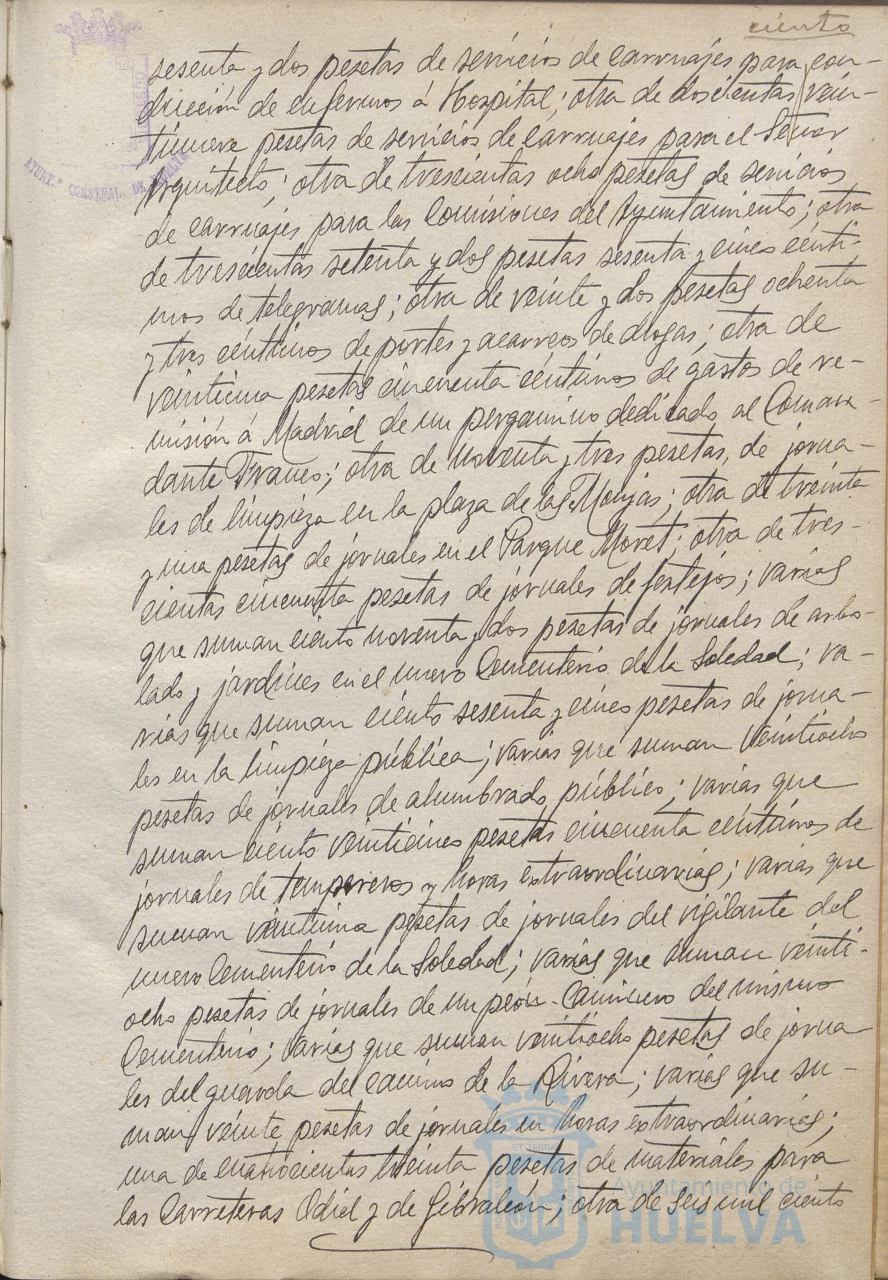 ciento
sesenta y dos pesetas de servicios de carruajes para con-
ducción de enfermos á Hospital; otra de doscientas vein-
tinueve pesetas de servicios de carruajes para el Señor
Arquitecto; otra de trescientas ocho pesetas de servicios
de carruajes para las Comisiones del Ayuntamiento; otra
de trescientas setenta y dos pesetas sesenta y cinco cénti-
mos de telegramas; otra de veinte y dos pesetas ochenta
y tres céntimos de portes y acarreos de drogas; otra de
veintiuna pesetas cincuenta céntimos de gastos de re-
misión á Madrid de un pergamino dedicado al Coman-
dante Franco; otra de noventa y tres pesetas, de jorna-
les de limpieza en la plaza de las Monjas; otra de treinta
y una pesetas de jornales en el Parque Moret; otra de tres-
cientas cincuenta pesetas de jornales de festejos; varias
que suman ciento noventa y dos pesetas de jornales de arbo-
lado y jardines en el nuevo Cementerio de la Soledad; va-
rias que suman ciento sesenta y cinco pesetas de jorna-
les en la limpieza pública; varias que suman veintiocho
pesetas de jornales de alumbrado público; varias que
suman ciento veinticinco pesetas cincuenta céntimos de
jornales de tempereros y horas extraordinarias; varias que
suman veintiuna pesetas de jornales del vigilante del
nuevo Cementerio de la Soledad; varias que suman veinti-
ocho pesetas de jornales de un peón-caminero del mismo
Cementerio; varias que suman veintiocho pesetas de jorna-
les del guarda del camino de la Rivera; varias que su-
man veinte pesetas de jornales en horas extraordinarias;
una de cuatrocientas treinta pesetas de materiales para
las Carreteras Odiel y de Gibraleón; otra de seis mil ciento
AYUNT.º CONSTNAL. DE HUELVA
Ayuntamiento de
HUELVA